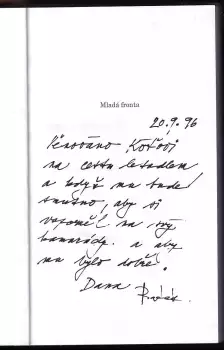 Mladá fronta
20.9.96
Věnováno Koťovi
na cestu letadlem
a když mu bude
smutno, aby si
vzpoměl na svý
kamarády. a aby
mu bylo dobře!
Dana